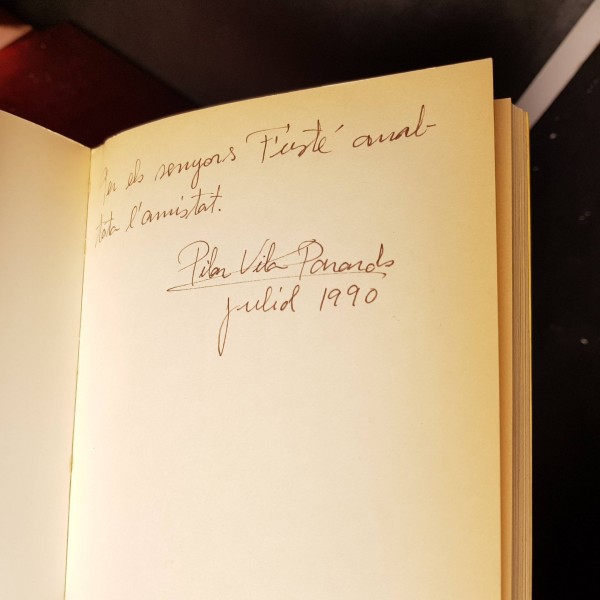 Per els senyors Fusté amb
tota l'amistat.
Pilar Vila
juliol 1990